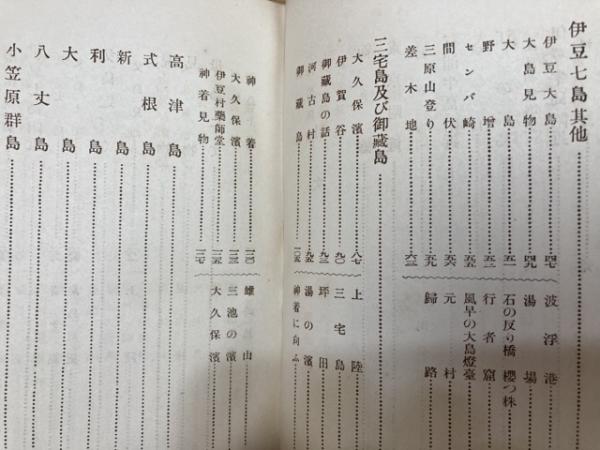 伊豆七島其他
伊豆大島……四七 波浮港
大島見物……四九 湯場
大島……五一 石の反り橋 櫻つ株
野增……五三 行者窟
センバ崎……五五 風早の大島燈臺
間伏……五六 元村
三原山登り……五九 歸路
差木地……六三
三宅島及び御藏島
大久保濱……八七 上陸
伊賀谷……九〇 三宅島
御藏島の話……九三 坪田
河古村……九五 湯の濱
御藏島……一〇五 神着に向ふ
神着 雄山
大久保濱 三池の濱
伊豆村藥師堂 大久保濱
神着見物
高津島
式根島
新島
利島
大島
八丈島
小笠原群島